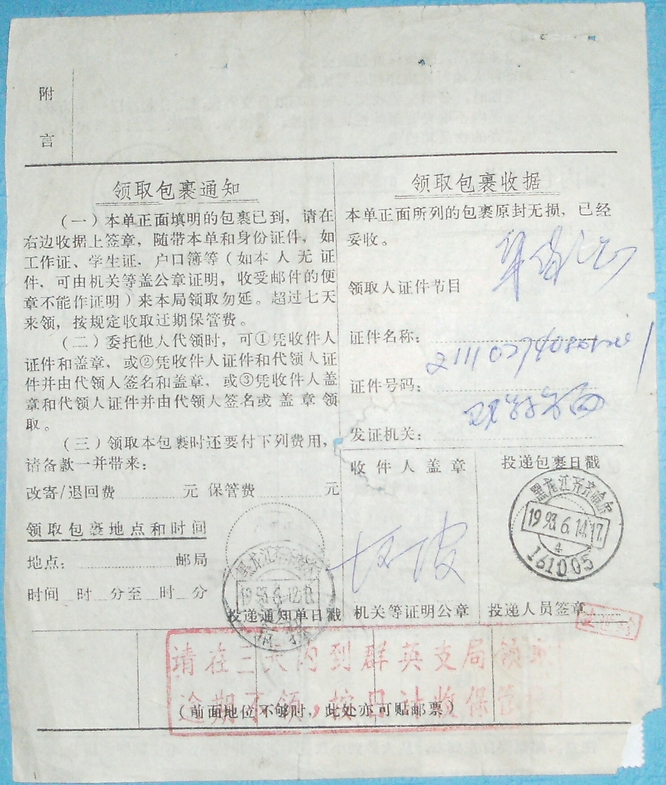 附
言
领取包裹通知
(一)本单正面填明的包裹已到，请在
右边收据上签章，随带本单和身份证件，如
工作证、学生证，户口簿等(如本人无证
件，可由机关等盖公章证明，收受邮件的便
章不能作证明)来本局领取勿延。超过七天
来领，按规定收取迟期保管费。
(二)委托他人代领时，可①凭收件人
证件和盖章，或②凭收件人证件和代领人证
件并由代领人签名和盖章，或③凭收件人盖
章和代领人证件并由代领人签名或盖章领
取。
(三)领取本包裹时还要付下列费用，
请备款一并带来：
改寄/退回费 元 保管费 元
领取包裹地点和时间
地点： 邮局
时间 时 分至 时 分
投递通知单日戳
领取包裹收据
本单正面所列的包裹原封无损，已经
妥收。
领取人证件节目
证件名称：
证件号码：
发证机关：
收件人盖章
投递包裹日戳
黑龙江齐齐哈尔
1998.6.14.17
4
161005
黑龙江齐齐哈尔
1998.6.12
机关等证明公章
投递人员签章
请在三天内到群英支局领
逾期不领，按日计收保管
(前面地位不够时，此处亦可贴邮票)